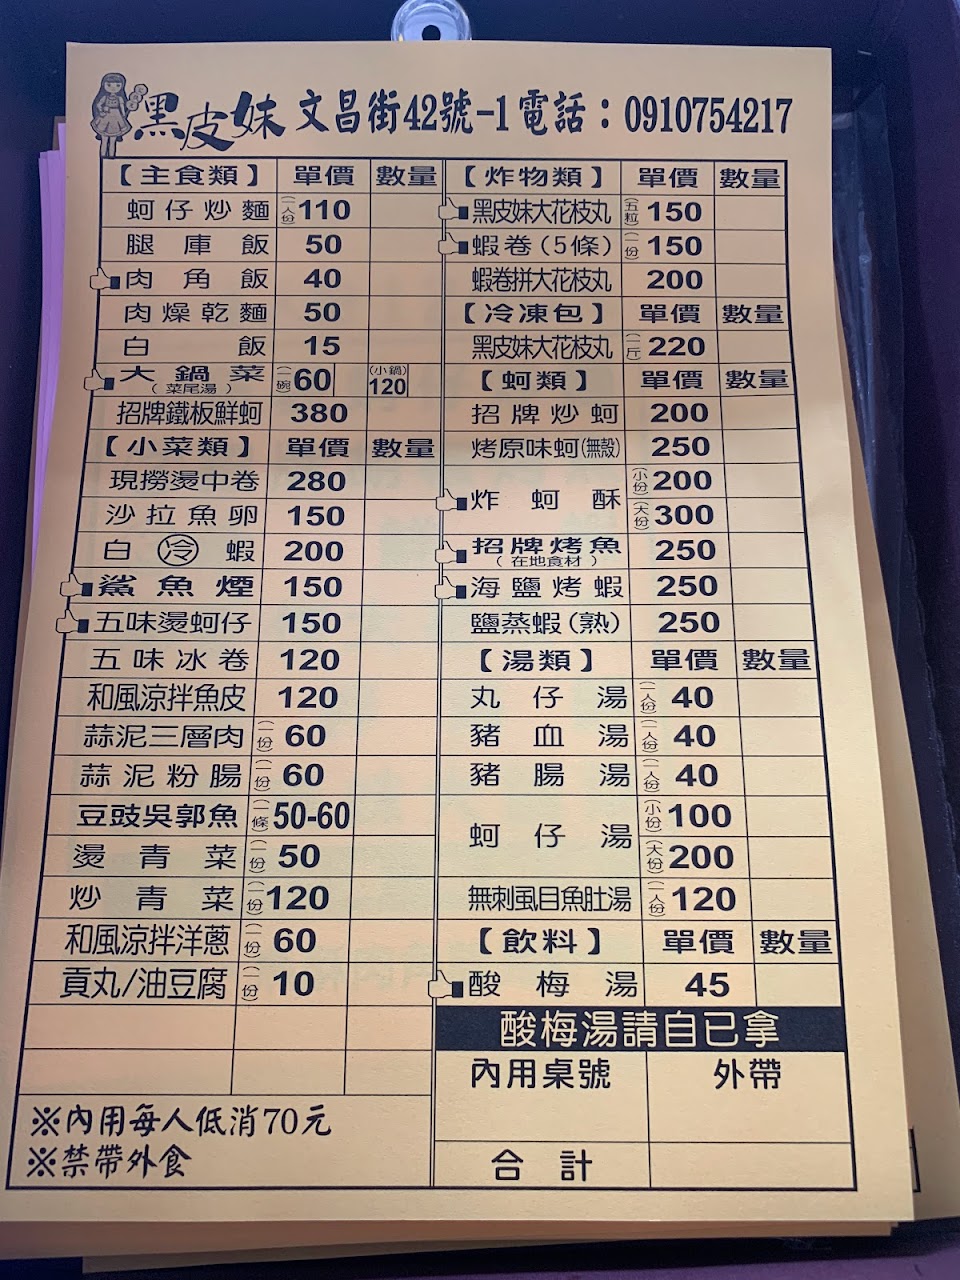 黑皮妹 文昌街42號-1 電話：0910754217
【主食類】 單價 數量
蚵仔炒麵 (一人份) 110
腿庫飯 50
肉角飯 40
肉燥乾麵 50
白飯 15
大鍋菜 (菜尾湯) (一碗) 60 (小鍋) 120
招牌鐵板鮮蚵 380
【小菜類】 單價 數量
現撈燙中卷 280
沙拉魚卵 150
白冷蝦 200
鯊魚煙 150
五味燙蚵仔 150
五味冰卷 120
和風涼拌魚皮 120
蒜泥三層肉 (一份) 60
蒜泥粉腸 (一份) 60
豆豉吳郭魚 (一條) 50-60
燙青菜 (一份) 50
炒青菜 (一份) 120
和風涼拌洋蔥 (一份) 60
貢丸/油豆腐 (一份) 10
※內用每人低消70元
※禁帶外食
【炸物類】 單價 數量
黑皮妹大花枝丸 (五粒) 150
蝦卷(5條) (一份) 150
蝦卷拼大花枝丸 200
【冷凍包】 單價 數量
黑皮妹大花枝丸 (一斤) 220
【蚵類】 單價 數量
招牌炒蚵 200
烤原味蚵(無殼) 250
炸蚵酥 (小份) 200
(大份) 300
招牌烤魚 (在地食材) 250
海鹽烤蝦 250
鹽蒸蝦(熟) 250
【湯類】 單價 數量
丸仔湯 (一人份) 40
豬血湯 (一人份) 40
豬腸湯 (一人份) 40
蚵仔湯 (小份) 100
(大份) 200
無刺虱目魚肚湯 (一人份) 120
【飲料】 單價 數量
酸梅湯 45
酸梅湯請自已拿
內用桌號 外帶
合計